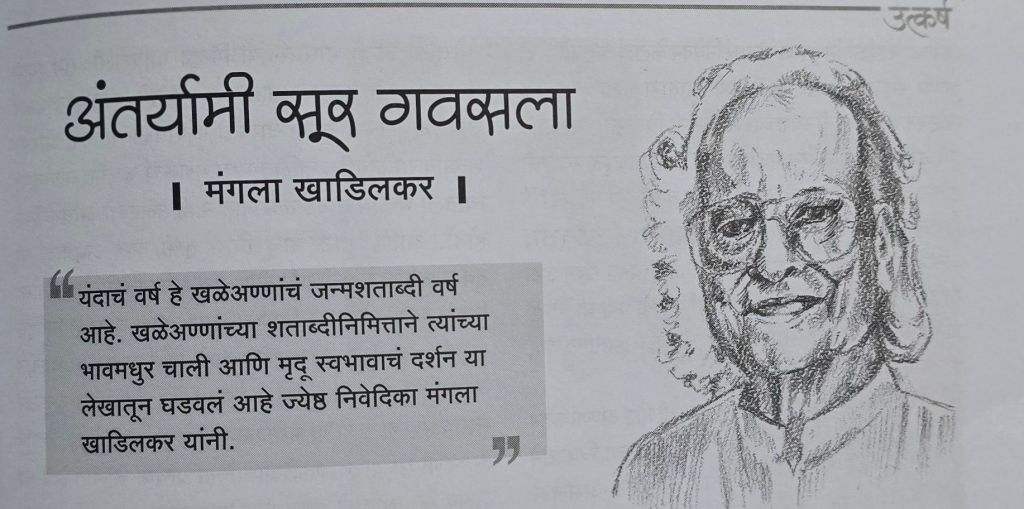 उत्कर्ष
अंतर्यामी सूर गवसला
मंगला खाडिलकर
“यंदाचं वर्ष हे खळेअण्णांचं जन्मशताब्दी वर्ष
आहे. खळेअण्णांच्या शताब्दीनिमित्ताने त्यांच्या
भावमधुर चाली आणि मृदू स्वभावाचं दर्शन या
लेखातून घडवलं आहे ज्येष्ठ निवेदिका मंगला
खाडिलकर यांनी.”